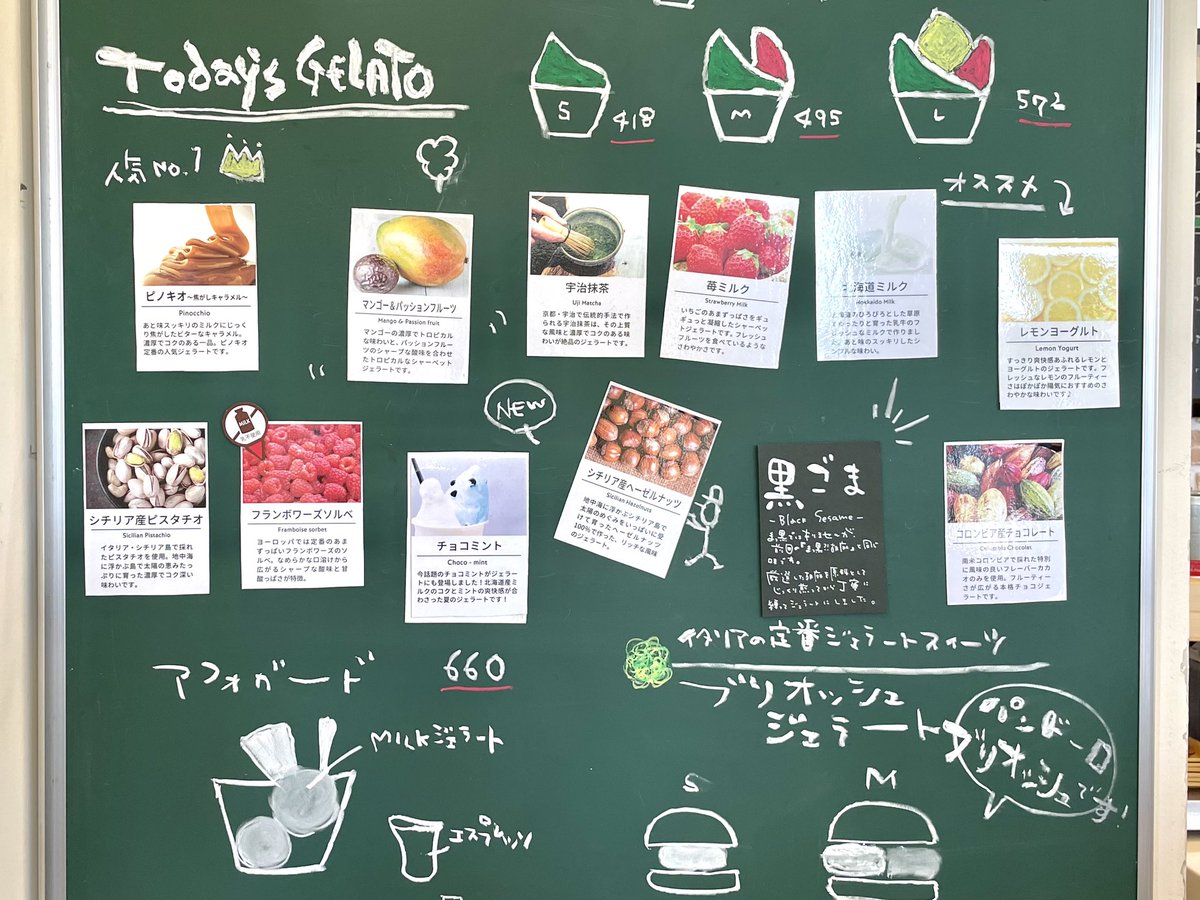 Today's GELATO
S 418
M 495
L 572
人気 No.1
オススメ
ピノキオ～焦がしキャラメル～
Pinocchio
あと味スッキリのミルクにじっく
り焦がしたビターなキャラメル。
濃厚でコクのある一品。ピノキオ
定番の人気ジェラートです。
マンゴー&パッションフルーツ
Mango & Passion fruit
マンゴーの濃厚でトロピカル
な味わいと、パッションフルー
ツのシャープな酸味を合わせ
たトロピカルなシャーベット
ジェラートです。
宇治抹茶
Uji Matcha
京都・宇治で伝統的手法で作
られる宇治抹茶は、その上質
な風味と濃厚でコクのある味
わいが絶品のジェラートです。
苺ミルク
Strawberry Milk
いちごのあまずっぱさをギュ
ギュっと凝縮したシャーベッ
トジェラートです。フレッシュ
フルーツを食べているような
さわやかさです。
北海道ミルク
Hokkaido Milk
北海道のひろびろとした草原
でゆったりと育った乳牛のフ
レッシュなミルクで作りまし
た。あと味のスッキリしたシ
ンプルな味わい。
レモンヨーグルト
Lemon Yogurt
すっきり爽快感あふれるレモンと
ヨーグルトのジェラートです。フ
レッシュなレモンのフルーティー
さはぽかぽか陽気におすすめのさ
わやかな味わいです♪
NEW
シチリア産ピスタチオ
Sicilian Pistachio
イタリア・シチリア島で採れ
たピスタチオを使用。地中海
に浮かぶ島で太陽の恵みたっ
ぷりに育った濃厚でコク深い
味わいです。
MILK
乳不使用
フランボワーズソルベ
Framboise sorbet
ヨーロッパでは定番のあま
ずっぱいフランボワーズのソ
ルベ。なめらかな口溶けから
広がるシャープな酸味と甘
酸っぱさが特徴。
チョコミント
Choco - mint
今話題のチョコミントがジェラー
トにも登場しました!北海道産ミ
ルクのコクとミントの爽快感が合
わさった夏のジェラートです!
シチリア産ヘーゼルナッツ
Sicilian Hazelnuts
地中海に浮かぶシチリア島で
太陽のめぐみをいっぱいに受
けて育ったヘーゼルナッツ
100%で作った、リッチな風味
のジェラート。
黒ごま
-Black Sesame-
コロンビア産チョコレート
Colombia Chocolat
南米コロンビアで採れた特別
に風味の良いフレーバーカカ
オのみを使用。フルーティー
さが広がる本格チョコジェ
ラートです。
アフォガード 660
MILKジェラート
エスプレッソ
イタリアの定番ジェラートスイーツ
ブリオッシュ
ジェラート
パンドーロ
ブリオッシュです!
S
M